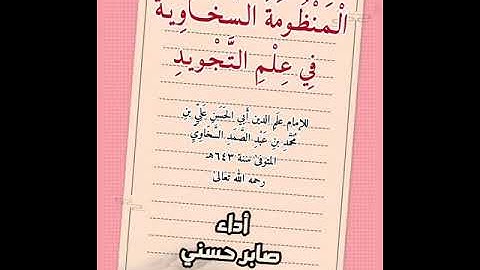 الْمَنْظُومَةُ السَّخَاوِيَّةُ
فِي عِلْمِ التَّجْوِيدِ
للإمام عَلَمِ الدين أَبِي الحَسَنِ عَلِيِّ بنِ
مُحَمَّدِ بنِ عَبْدِ الصَّمَدِ السَّخَاوِيِّ
المتوفى سنة ٦٤٣هـ
رحمه الله تعالى
أداء
صابر حسني